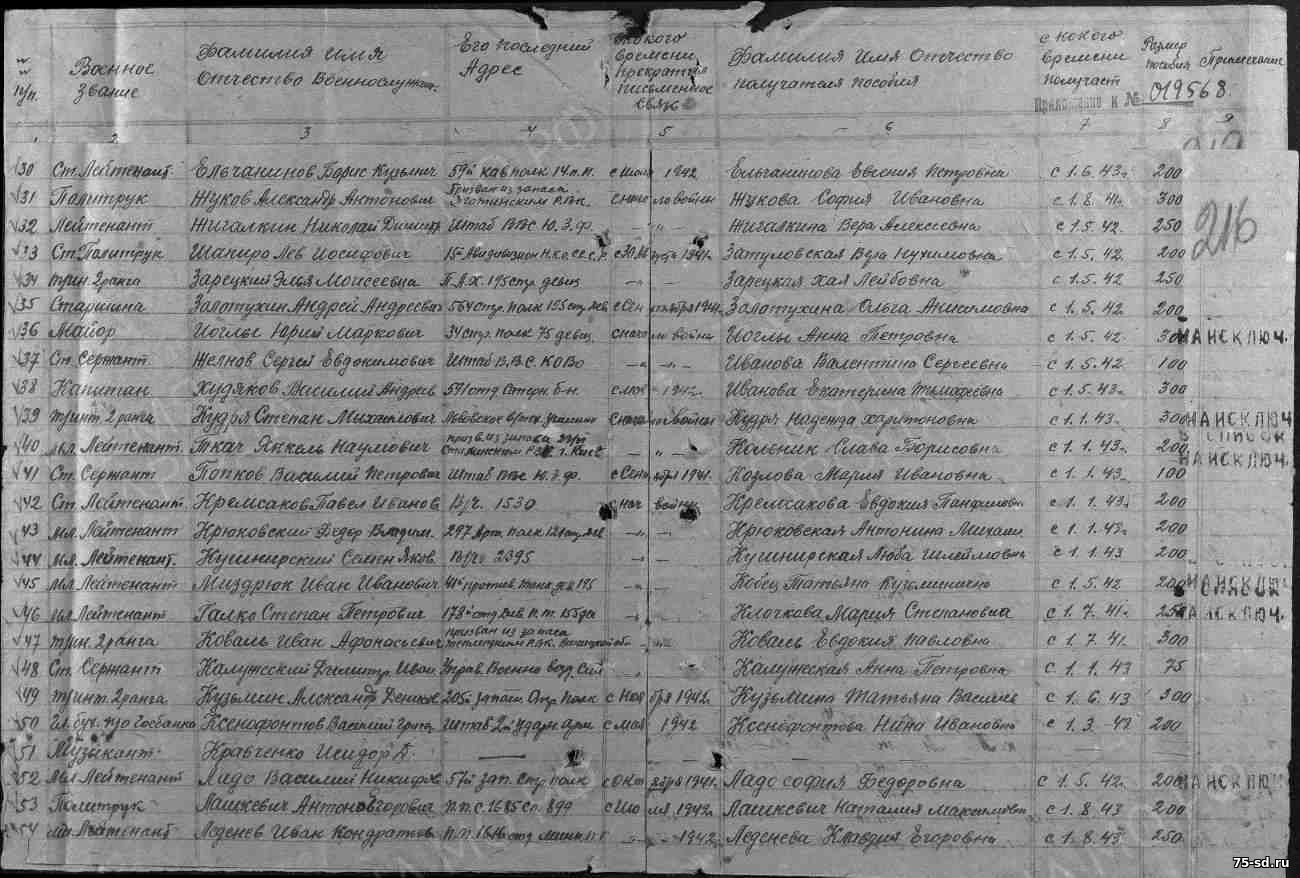 № № п/п. Военное Звание Фамилия Имя Отчество Военнослужащ. Его последний Адрес с какого времени прекратил письменное связь Фамилия Имя Отчество получателя пособия с какого времени получает Размер пособия Примечание
Приложение к № 019568.
2 3 4 5 6 7 8 9
216
30 Ст. Лейтенант. Ельчанинов Борис Кузьмич 59й кав полк 14 п.п. с Июля 1942 Ельчанинова Евгения Петровна с 1.6.43г. 200
31 Политрук Жуков Александр Антонович Призван из запаса РВК. с начала войны Жукова София Ивановна с 1.8.41г. 300
32 Лейтенант Жигалкин Николай Дмитр Штаб ВВС Ю.З.ф. - " - Жигалкина Вера Алексеевна с 1.5.42. 250
33 Ст. Политрук Шапиро Лев Иосифович 1941г. Затуловская Вера Нухимовна с 1.5.42. 200
34 т/ин. 2 ранга Зарецкий Элья Моисеевич П.А.Х. 195 стр. дивиз - Зарецкая Хая Лейбовна с 1.5.42. 250
35 Старшина Золотухин Андрей Андреевич 564 стр. полк 195 стр. див с Сентября 1941г. Золотухина Ольга Анисимовна с 1.5.42. 200
36 Майор Иоглы Юрий Маркович 34 стр. полк 75 дивиз. с начала войны Иоглы Анна Петровна с 1.5.42. 300 МАИСКЛЮЧ.
37 Ст. Сержант Желнов Сергей Евдокимович Штаб В.В.С. КОВО - " - Иванова Валентина Сергеевна с 1.5.42г. 100
38 Капитан Худяков Василий Андреев 591 отд. б-н. 1942г. Иванова Екатерина Тимофеевна с 1.5.43г. 300
39 т/инт. 2 ранга Кудря Степан Михайлович Львовское училище с начала войны Кудря Надежда Харитоновна с 1.1.43. 300 МАИСКЛЮЧ.
В СПИСОК
40 мл. Лейтенант. Ткач Янкель Наумович призв. из запаса Сталинским РВК г. Киев - " - Кольник Слава Борисовна с 1.1.43. 200 МАИСКЛЮЧ.
41 Ст. Сержант Попков Василий Петрович Штаб ВВС Ю.З.ф. с Сентября 1941. Козлова Мария Ивановна с 1.1.43. 100
42 Ст. Лейтенант. Кремсаков Павел Иванов В/ч. 1530 с нач войны Кремсакова Евдокия Панфиловн с 1.1.43г. 200
43 мл. Лейтенант Крюковский Федор Владим. 297 Арт. полк - Крюковская Антонина Михаил с 1.1.43г. 200
44 мл. Лейтенант. Кушнирский Семен Яков. В/ч 2395 - Кушнирская Люба Шлеймовна с 1.1.43 200
45 мл. Лейтенант Миздрюк Иван Иванович 195 - " - Кобец Татьяна Кузьминична с 1.5.42 200 МАИСКЛЮЧ.
В СПИСОК
46 мл. Лейтенант Галко Степан Петрович 178 отд. - " - Клочкова Мария Степановна с 1.7.41г. 250 МАИСКЛЮЧ.
47 т/ин. 2 ранга Коваль Иван Афонасьевич призван из запаса РВК. - Коваль Евдокия Павловна с 1.7.41. 300
48 Ст. Сержант Калужский Дмитр Иван Управ. Военно возд. Сил - Калужская Анна Петровна с 1.1.43 75
49 т/инт. 2 ранга Кузьмин Александр Денисов 205й запасн. Стр. полк с Ноября 1942г. Кузьмина Татьяна Василье с 1.6.43 300
50 Гл. бух. Госбанка Ксенофонтов Василий Григ Штаб 2й Ударн. Арм с Мая 1942 Ксенофонтова Нина Ивановна с 1.3.43 200
51 Музыкант. Кравченко Исидор Д. — — — —
52 мл. Лейтенант Ладо Василий Никифор 57й зап. Стр. полк с Октября 1941г. Ладо София Федоровна с 1.5.42. 200 МАИСКЛЮЧ.
53 Политрук Лашкевич Антон Егорович п.п.с. 1685 сп. 899 с Июля 1942г. Лашкевич Наталия Максимовн с 1.8.43 200
54 мл. Лейтенант Леденев Иван Кондратов - " - 1942г. Леденева Клавдия Егоровна с 1.8.43 250
75-sd.ru